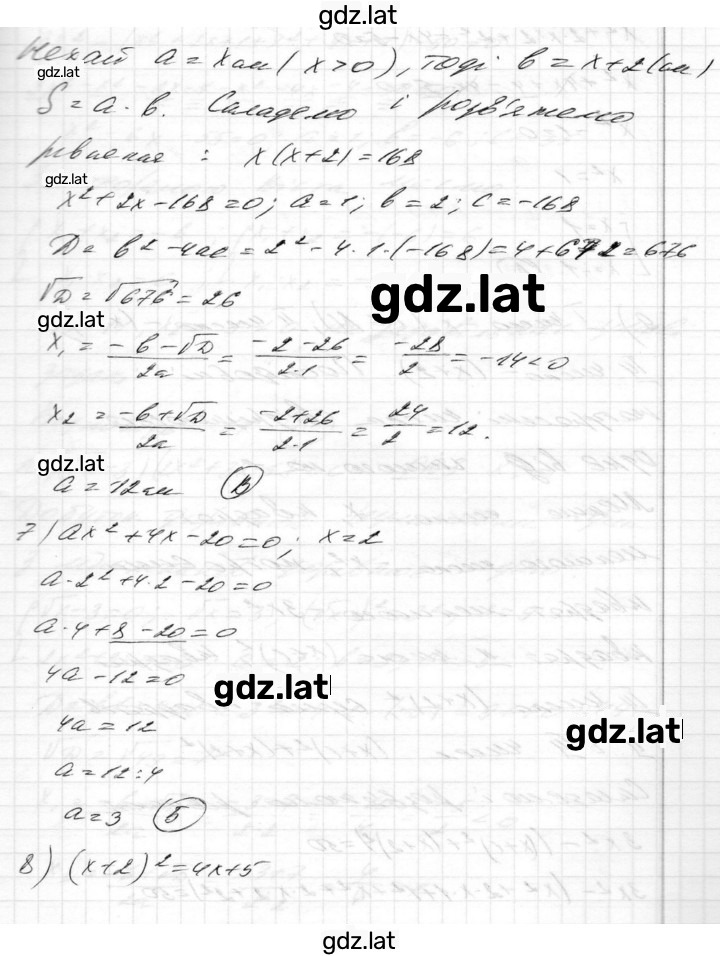 gdz.lat
Нехай a = x см (x>0), тоді b = x+2 (см)
gdz.lat
S = a · b. Складемо і розв'яжемо
рівняння : x(x+2) = 168
gdz.lat
x² + 2x - 168 = 0; a = 1; b = 2; c = -168
D = b² - 4ac = 2² - 4 · 1 · (-168) = 4 + 672 = 676
√D = √676 = 26
gdz.lat
gdz.lat
x₁ = (-b-√D)/2a = (-2-26)/(2·1) = -28/2 = -14 < 0
x₂ = (-b+√D)/2a = (-2+26)/(2·1) = 24/2 = 12.
gdz.lat
a = 12 см (В)
7) ax² + 4x - 20 = 0; x = 2
a · 2² + 4 · 2 - 20 = 0
a · 4 + 8 - 20 = 0
4a - 12 = 0
gdz.lat
4a = 12
gdz.lat
a = 12 : 4
a = 3 (Б)
8) (x+2)² = 4x + 5
gdz.lat